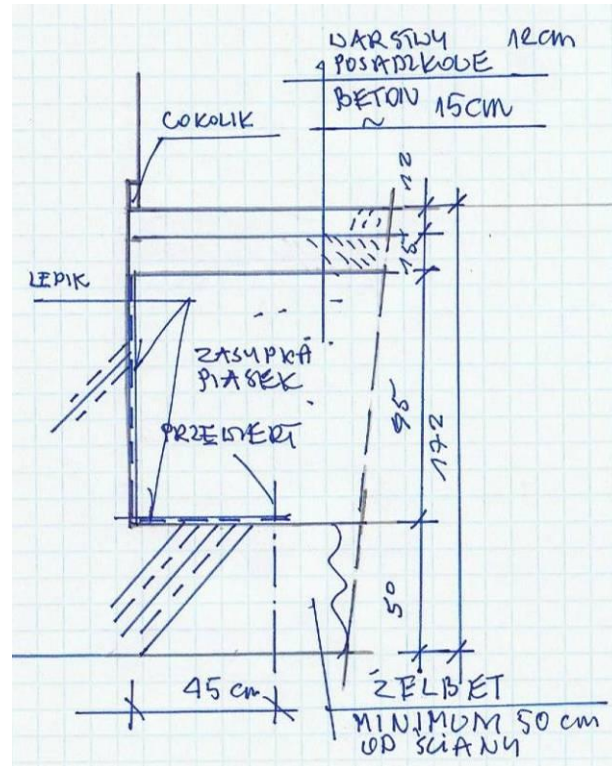 WARSTWY 12cm
POSADZKOWE
BETON 15cm
~
COKOLIK
12
15
LEPIK
ZASYPKA
PIASEK
PRZEWIERT
95
172
50
45 cm
ŻELBET
MINIMUM 50 cm
OD ŚCIANY